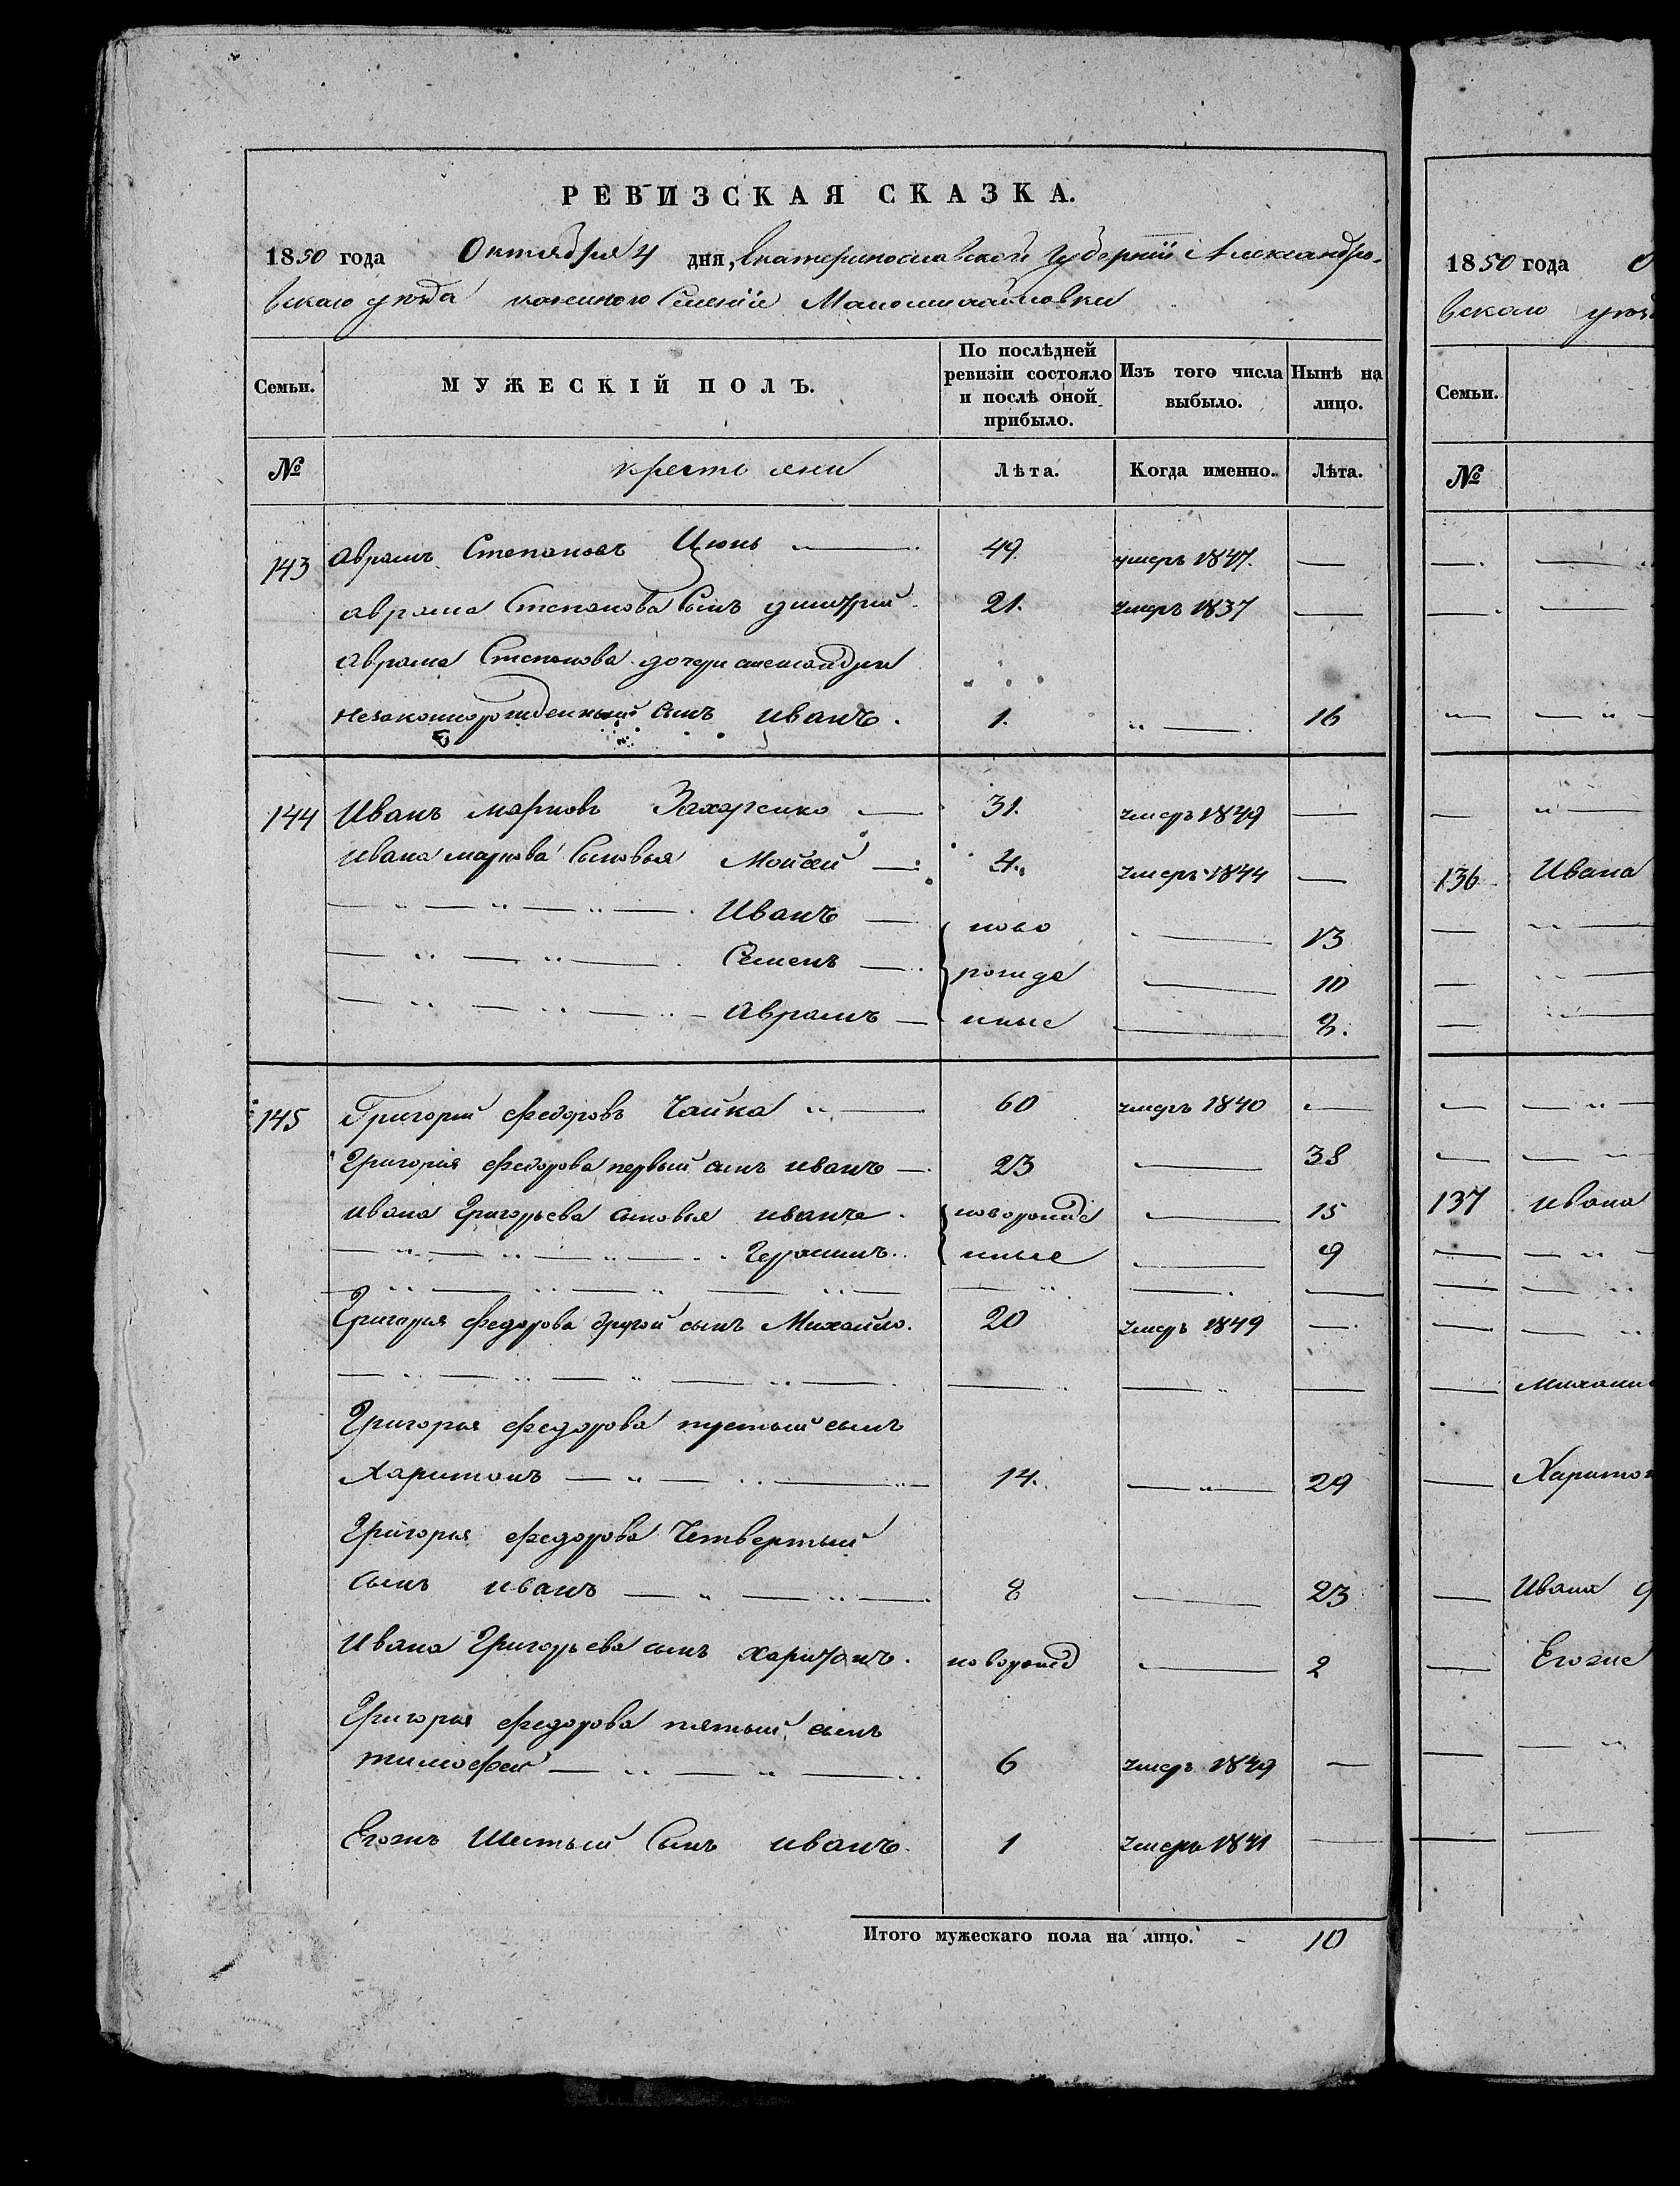 РЕВИЗСКАЯ СКАЗКА.
1850 года Октября 4 дня, Екатеринославской Губернии Александро-
вскаго уезда казенного Селенiе Маломихайловки
Семьи. МУЖЕСКIЙ ПОЛЪ. По послѣдней ревизiи состояло и послѣ оной прибыло. Изъ того числа выбыло. Нынѣ на лицо.
№ крестьяни Лѣта. Когда именно. Лѣта.
143 Аврамъ Степановъ Цюнь 49. умеръ 1847. —
Аврама Степанова Сынъ дмитрий 21. умеръ 1837 —
Аврама Степанова дочери александри
незаконнорожденный сынъ иванъ. 1. 16
144 Иванъ марковъ Захарсико 31. умеръ 1849 —
Ивана маркова Сыновья Мойсей 4. умеръ 1844 —
— " — " — " — Иванъ — ново — 13
— " — " — Семенъ — рожде — 10
— " — " — " — Аврамъ — нные — 8.
145 Григорий федоровъ Чайка " — 60 умеръ 1840 —
Григория федорова первый сынъ иванъ — 23 — 38
ивана Григорьева сыновья иванъ. новорожде — 15
— " — " — " — " Герасимъ.. нные — 9
Григория федорова другой сынъ Михайло. 20 умеръ 1849 —
Григорья федорова третьий сынъ
Харитонъ — " — 14. — " — 29
Григорья федорова Четвертый
сынъ иванъ — " — " — 8 — 23
Ивана Григорьева сынъ харитонъ. новорожд — 2
Григория федорова пятый сынъ
тимофей — " — " — 6 умеръ 1849 —
Егожъ Шестый Сынъ иванъ. 1 умеръ 1841 —
Итого мужескаго пола на лицо. - 10
1850 года О
вскаго уезд
Семьи.
№
136 Ивана
137 ивана
Михаил
Харитон
Ивана
Егоже